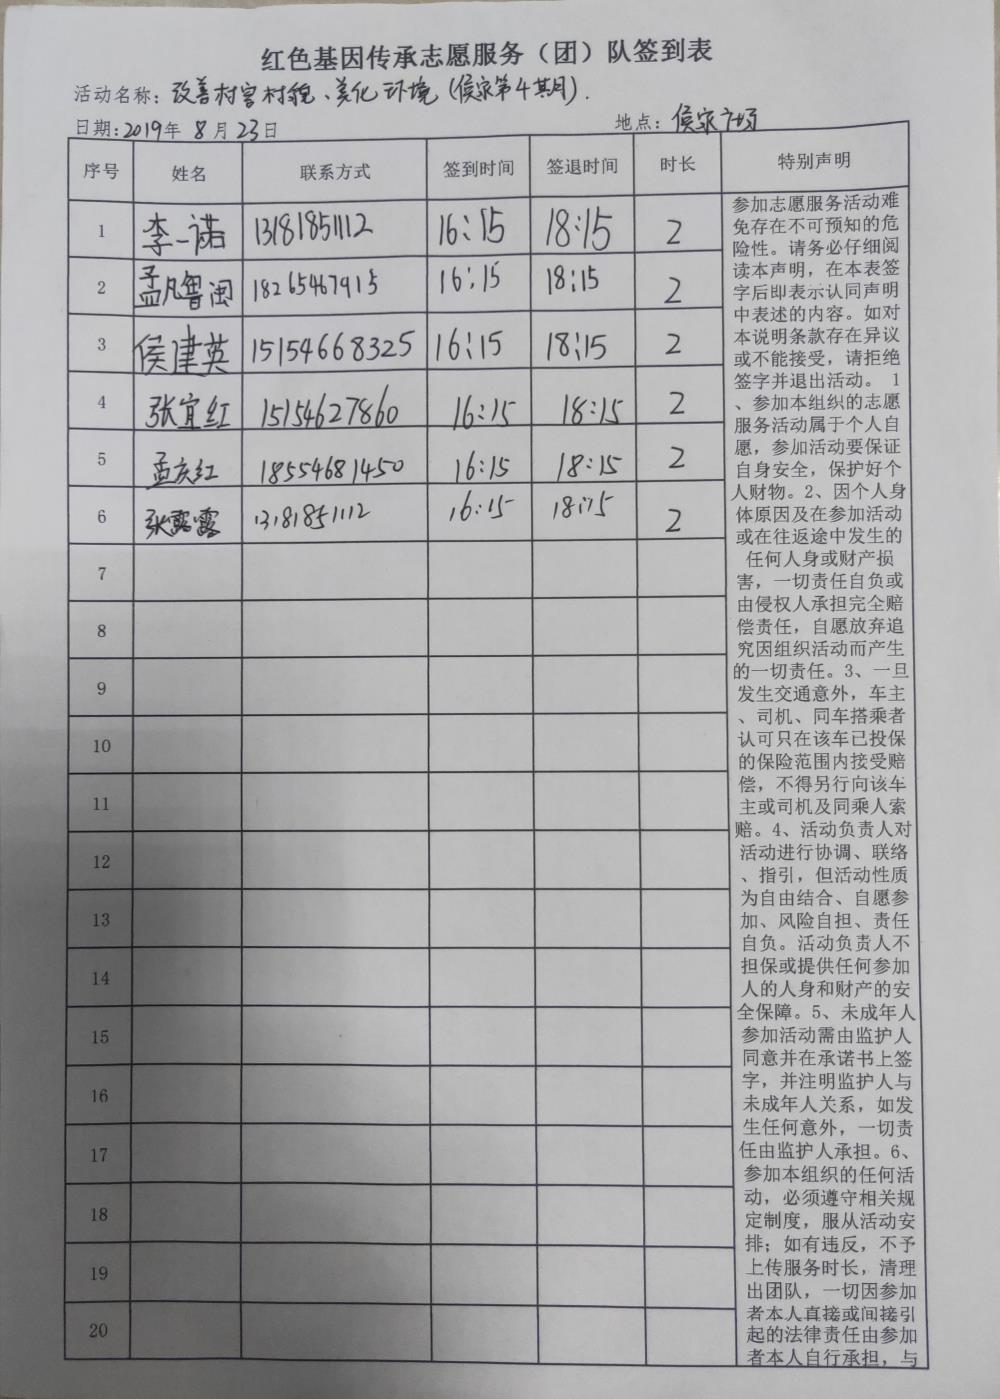 红色基因传承志愿服务（团）队签到表
活动名称：改善村容村貌、美化环境（侯家第4期）.
日期：2019年 8月23日 地点：侯家广场
序号 姓名 联系方式 签到时间 签退时间 时长 特别声明
1 李一诺 13181851112 16:15 18:15 2
2 孟凡鲁闽 18265467915 16:15 18:15 2
3 侯建英 15154668325 16:15 18:15 2
4 张宜红 15154627860 16:15 18:15 2
5 孟庆红 18554681450 16:15 18:15 2
6 张露露 13181851112 16:15 18:15 2
7
8
9
10
11
12
13
14
15
16
17
18
19
20
参加志愿服务活动难
免存在不可预知的危
险性。请务必仔细阅
读本声明，在本表签
字后即表示认同声明
中表述的内容。如对
本说明条款存在异议
或不能接受，请拒绝
签字并退出活动。 1
、参加本组织的志愿
服务活动属于个人自
愿，参加活动要保证
自身安全，保护好个
人财物。2、因个人身
体原因及在参加活动
或在往返途中发生的
任何人身或财产损
害，一切责任自负或
由侵权人承担完全赔
偿责任，自愿放弃追
究因组织活动而产生
的一切责任。3、一旦
发生交通意外，车主
、司机、同车搭乘者
认可只在该车已投保
的保险范围内接受赔
偿，不得另行向该车
主或司机及同乘人索
赔。4、活动负责人对
活动进行协调、联络
、指引，但活动性质
为自由结合、自愿参
加、风险自担、责任
自负。活动负责人不
担保或提供任何参加
人的人身和财产的安
全保障。5、未成年人
参加活动需由监护人
同意并在承诺书上签
字，并注明监护人与
未成年人关系，如发
生任何意外，一切责
任由监护人承担。6、
参加本组织的任何活
动，必须遵守相关规
定制度，服从活动安
排；如有违反，不予
上传服务时长，清理
出团队，一切因参加
者本人直接或间接引
起的法律责任由参加
者本人自行承担，与